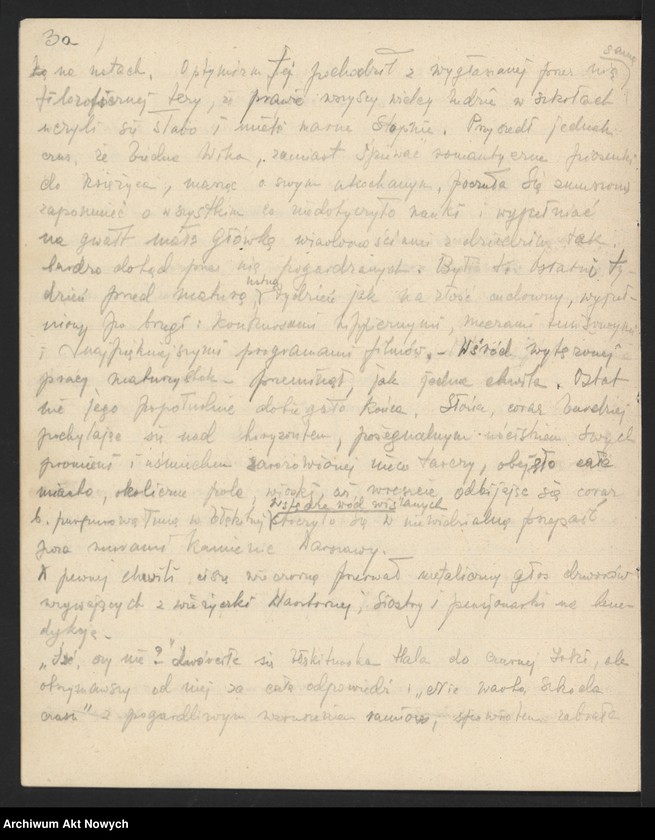 3a
są na nutach. Optymizm jej pochodził z wygłaszanej przez nią samą
filozoficznej tezy, że prawie wszyscy wielcy ludzie w szkołach
uczyli się słabo i mieli marne stopnie. Przyszedł jednak
czas, że biedna Wika, zamiast śpiewać romantyczne piosenki
do księżyca, marząc o swym ukochanym, poczuła się zmuszoną
zapomnieć o wszystkim co niedotyczyło nauki i wypełniać
na gwałt małą główkę wiadomościami z dziedzin tak
bardzo dotąd przez nią pogardzanych. Był to ostatni ty-
dzień przed maturą, tydzień jak na złość cudowny, wypeł-
niony po brzegi konkursami hippicznymi, meczami
i najpiękniejszymi programami filmów. - Wśród wytężonej
pracy maturzystek - przeminął, jak jedna chwila. Ostat
nie jego popołudnie dobiegało końca. Słońce, coraz bardziej
pochylając się nad horyzontem, pożegnalnym uściskiem swych
promieni i uśmiechem zaróżowionej nieco tarczy, objęło całe
miasto, okoliczne pola, wioski, aż wreszcie odbijając się coraz
b. purpurową łuną w błękitnej wstędze wód wiślanych stoczyło się w niewidzialną przepaść
poza murami kamienic Warszawy.
W pewnej chwili ciszę wieczorną przerwał metaliczny głos dzwonów
wzywających z wieżyczki klasztornej, siostry i pensjonarki na bene-
dykcję.
„Iść, czy nie?" zwróciła się Hala do czarnej Iśki, ale
otrzymawszy od niej za całą odpowiedź: „Nie warto, szkoda
czasu" z pogardliwym wzruszeniem ramion, zabrała